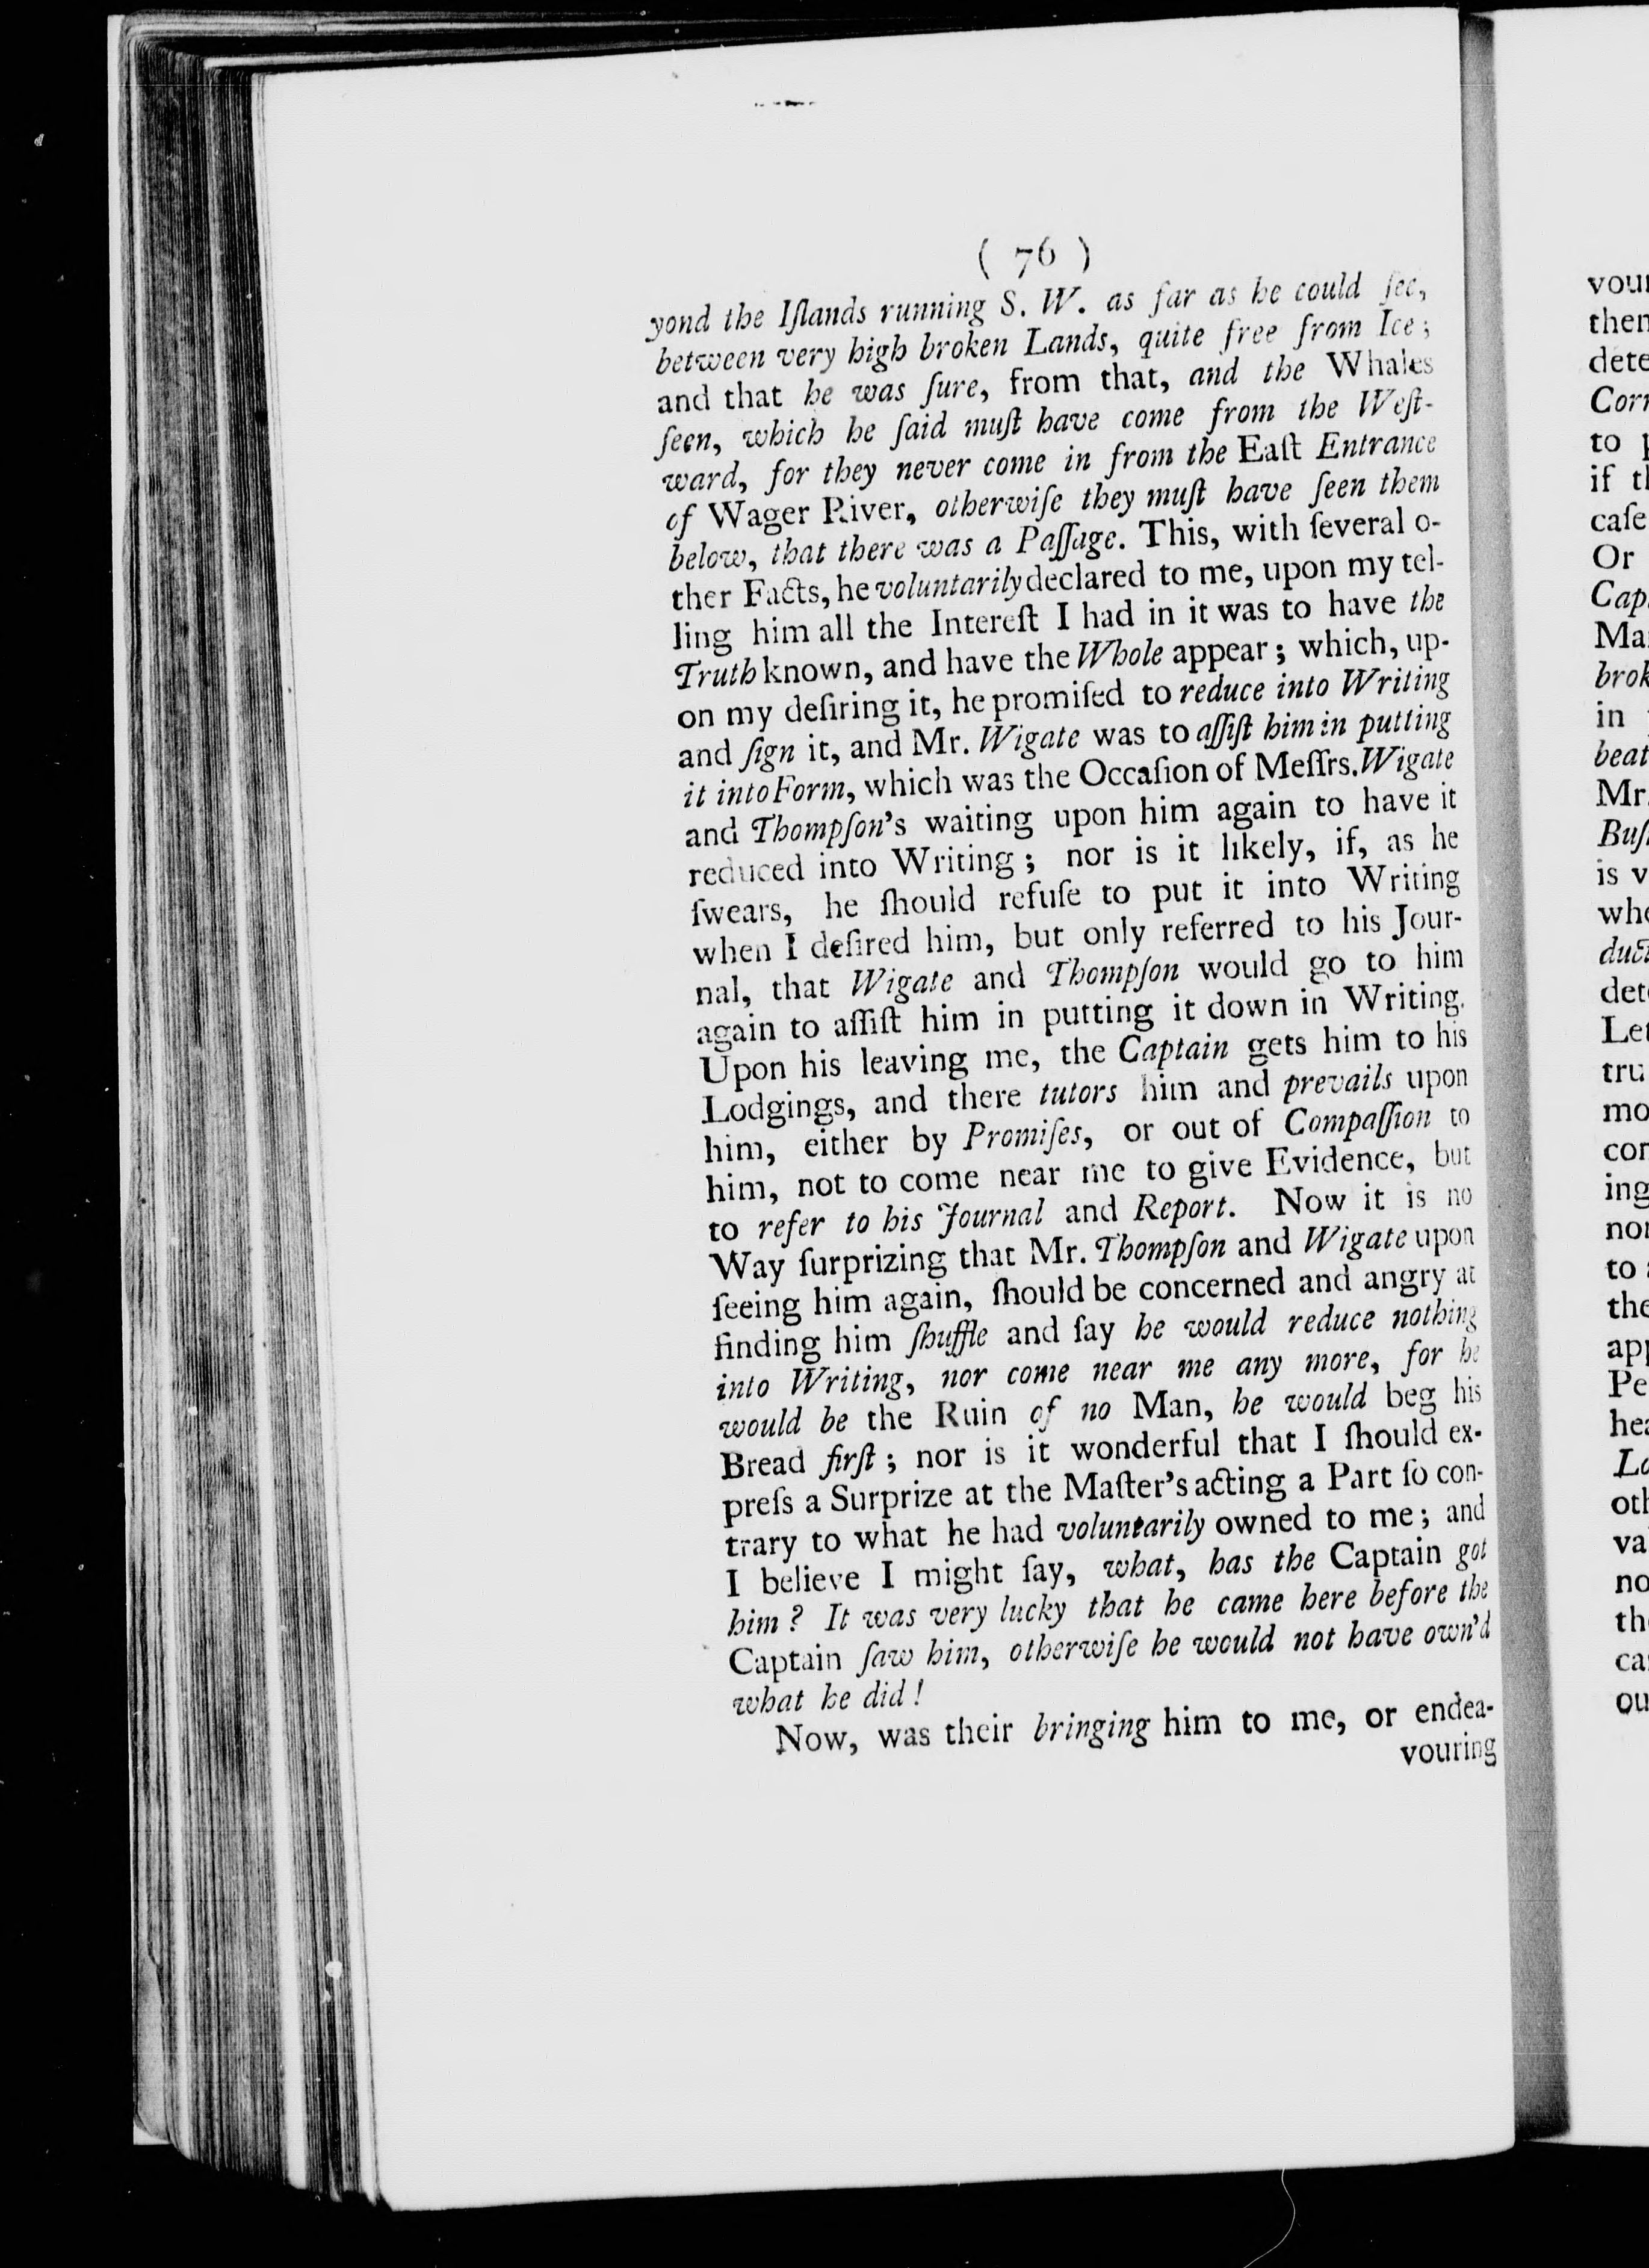 ( 76 )
yond the Iſlands running S. W. as far as he could ſee,
between very high broken Lands, quite free from Ice;
and that he was ſure, from that, and the Whales
ſeen, which he ſaid muſt have come from the Weſt-
ward, for they never come in from the Eaſt Entrance
of Wager River, otherwiſe they muſt have ſeen them
below, that there was a Paſſage. This, with ſeveral o-
ther Facts, he voluntarily declared to me, upon my tel-
ling him all the Intereſt I had in it was to have the
Truth known, and have the Whole appear; which, up-
on my deſiring it, he promiſed to reduce into Writing
and ſign it, and Mr. Wigate was to aſſiſt him in putting
it into Form, which was the Occaſion of Meſſrs. Wigate
and Thompſon's waiting upon him again to have it
reduced into Writing; nor is it likely, if, as he
ſwears, he ſhould refuſe to put it into Writing
when I deſired him, but only referred to his Jour-
nal, that Wigate and Thompſon would go to him
again to aſſiſt him in putting it down in Writing.
Upon his leaving me, the Captain gets him to his
Lodgings, and there tutors him and prevails upon
him, either by Promiſes, or out of Compaſſion to
him, not to come near me to give Evidence, but
to refer to his Journal and Report. Now it is no
Way ſurprizing that Mr. Thompſon and Wigate upon
ſeeing him again, ſhould be concerned and angry at
finding him ſhuffle and ſay he would reduce nothing
into Writing, nor come near me any more, for he
would be the Ruin of no Man, he would beg his
Bread firſt; nor is it wonderful that I ſhould ex-
preſs a Surprize at the Maſter's acting a Part ſo con-
trary to what he had voluntarily owned to me; and
I believe I might ſay, what, has the Captain got
him? It was very lucky that he came here before the
Captain ſaw him, otherwiſe he would not have own'd
what he did!
Now, was their bringing him to me, or endea-
vouring